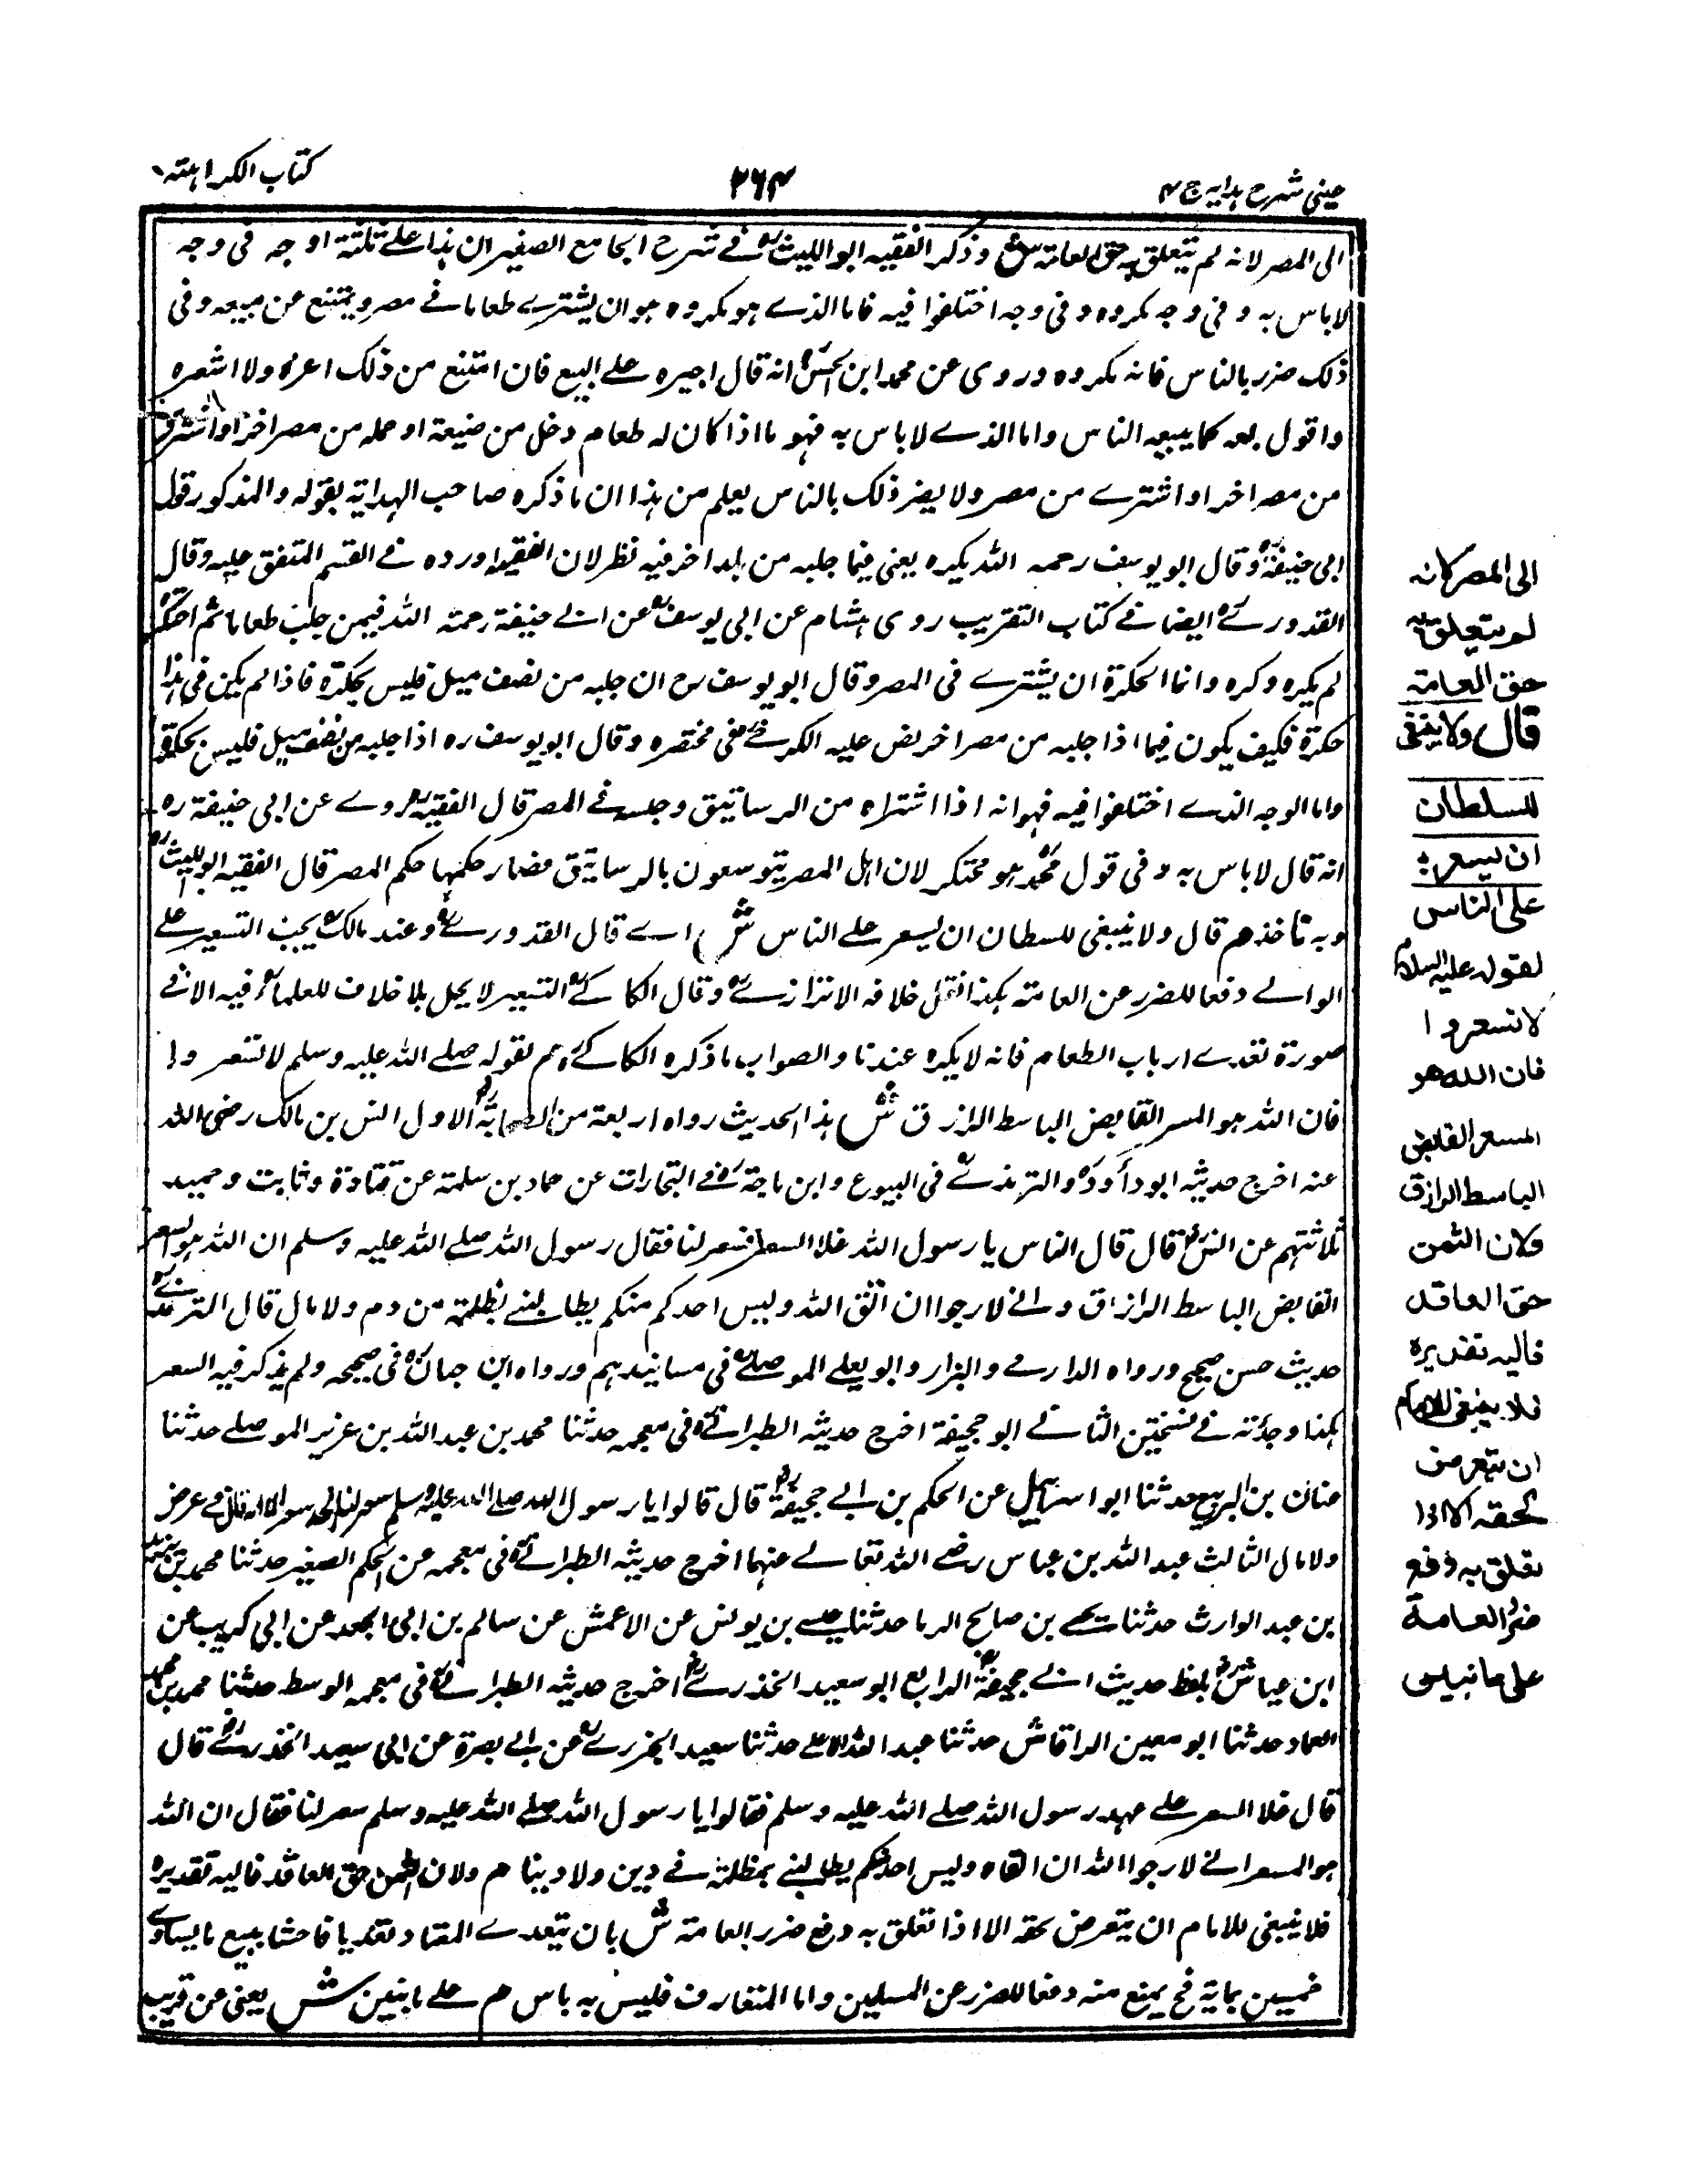 عینی شرح ہدایہ ج ۴
۲۶۴
کتاب الکراہتہ
الی المصر لانہ لم یتعلق بہ حق العامۃ ش وذکر الفقیہ ابو اللیث رہ فے شرح الجامع الصغیر ان ہذا علے ثلثۃ اوجہ فی وجہ
لا باس بہ و فی وجہ مکروہ و فی وجہ اختلفوا فیہ فاما الذے ہو مکروہ ہو ان یشترے طعاما فے مصر و یمتنع من بیعہ و فی
ذلک ضرر بالناس فانہ مکروہ و روی عن محمد ابن الحسن رہ انہ قال اجبرہ علے البیع فان امتنع من ذلک اعزرہ ولا اسعرہ
واقول بعہ کما یبیعہ الناس واما الذے لا باس بہ فہو ما اذا کان لہ طعام دخل من ضیعۃ او حملہ من مصر اخر او اشترے
من مصر اخر او اشترے من مصر ولا یضر ذلک بالناس یعلم من ہذا ان ما ذکرہ صاحب الہدایۃ بقولہ والمذکور قول
ابی حنیفۃ رہ وقال ابو یوسف رحمہ اللہ یکرہ یعنی فیما جلبہ من بلد اخر فیہ نظر لان الفقیہ اوردہ فے القسم المتفق علیہ وقال
القدورے رہ ایضا فے کتاب التقریب روی ہشام عن ابی یوسف رہ عن ابے حنیفۃ رحمۃ اللہ فیمن جلب طعاما ثم احتکر
لم یکرہ وکرہ وانما الحکرۃ ان یشترے فی المصر وقال ابو یوسف رح ان جلبہ من نصف میل فلیس بحکرۃ فاذا لم یکن فی ہذا
حکرۃ فکیف یکون فیما اذا جلبہ من مصر اخر نص علیہ الکرخے فی مختصرہ وقال ابو یوسف رہ اذا جلبہ من نصف میل فلیس بحکرۃ
واما الوجہ الذے اختلفوا فیہ فہو انہ اذا اشتراہ من الرساتیق وحبسہ فے المصر قال الفقیہ رہ روے عن ابی حنیفۃ رہ
انہ قال لا باس بہ و فی قول محمد رہ ہو محتکر لان اہل المصر یتوسعون بالرساتیق فصار حکمہا حکم المصر قال الفقیہ ابو اللیث رہ
وبہ ناخذ ھم قال ولا ینبغی للسلطان ان یسعر علے الناس ش اے قال القدورے رہ وعند مالک رہ یجب التسعیر علے
الوالے دفعا للضرر عن العامۃ ہکذا نقل خلافہ الاترازے رہ وقال الکاکے رہ التسعیر لا یحل بلا خلاف للعلماء رہ فیہ الا فے
صورۃ تعدے ارباب الطعام فانہ لا یکرہ عندنا والصواب ما ذکرہ الکاکے رہ ھم لقولہ صلے اللہ علیہ وسلم لا تسعروا
فان اللہ ہو المسعر القابض الباسط الرازق ش ہذا الحدیث رواہ اربعۃ من الصحابۃ رض الاول انس بن مالک رضی اللہ
عنہ اخرج حدیثہ ابو داؤد رہ والترمذے رہ فی البیوع وابن ماجۃ رہ فے التجارات عن حماد بن سلمۃ عن قتادۃ وثابت وحمید
ثلاثتہم عن انس رض قال قال الناس یا رسول اللہ غلا السعر فسعر لنا فقال رسول اللہ صلے اللہ علیہ وسلم ان اللہ ہو المسعر
القابض الباسط الرازق وانے لارجو ان القی اللہ ولیس احدکم منکم یطالبنے بظلمۃ من دم ولا مال قال الترمذے رہ
حدیث حسن صحیح ورواہ الدارمے والبزار وابو یعلے الموصلے رہ فی مسانیدہم ورواہ ابن حبان رہ فی صحیحہ ولم یذکر فیہ السعر
ہکذا وجدتہ فے نسختین الثانے ابو جحیفۃ اخرج حدیثہ الطبرانے رہ فی معجمہ حدثنا محمد بن عبد اللہ بن عزیر الموصلے حدثنا
بن الربیع حدثنا ابو اسرائیل عن الحکم بن ابے جحیفۃ رض قال قالوا یا رسول اللہ صلے اللہ علیہ وسلم سعر لنا فے عرض
ولا مال الثالث عبد اللہ بن عباس رضے اللہ تعالے عنہما اخرج حدیثہ الطبرانے رہ فی معجمہ عن الحکم الصغیر حدثنا محمد بن یزید
بن عبد الوارث حدثنا یحیے بن صالح الرما حدثنا عیسے بن یونس عن الاعمش عن سالم بن ابی الجعد عن ابی کریب عن
ابن عباس رض بلفظ حدیث ابے جحیفۃ رض الرابع ابو سعید الخدرے رض اخرج حدیثہ الطبرانے رہ فی معجمہ الوسط حدثنا محمد بن محمد
العماد حدثنا ابو معین الراقاش حدثنا عبد الاعلے حدثنا سعید الجزرے رہ عن ابے بصرۃ عن ابی سعید الخدرے رض قال
قال غلا السعر علے عہد رسول اللہ صلے اللہ علیہ وسلم فقالوا یا رسول اللہ صلے اللہ علیہ وسلم سعر لنا فقال ان اللہ
ہو المسعر انے لارجو اللہ ان القاہ ولیس احدکم یطلبنے بمظلمۃ فے دین ولا دینا ھم ولان الثمن حق العاقد فالیہ تقدیرہ
فلا ینبغی للامام ان یتعرض بحقہ الا اذا تعلق بہ دفع ضرر العامۃ ش بان یتعدے المعتاد تعدیا فاحشا یبیع ما یساوے
خمسین بمایۃ فح یمنع منہ دفعا للضرر عن المسلمین واما المتعارف فلیس بہ باس ھم علے ما نبین ش یعنی عن قریب
الی المصر کانہ
لم یتعلق بہ
حق العامۃ
قال ولا ینبغی
للسلطان
ان یسعر
علی الناس
لقولہ علیہ السلام
لا تسعروا
فان اللہ ھو
المسعر القابض
الباسط الرازق
ولان الثمن
حق العاقد
فالیہ تقدیرہ
فلا ینبغی للامام
ان یتعرض
لحقہ الا اذا
تعلق بہ دفع
ضرر العامۃ
علی ما نبین